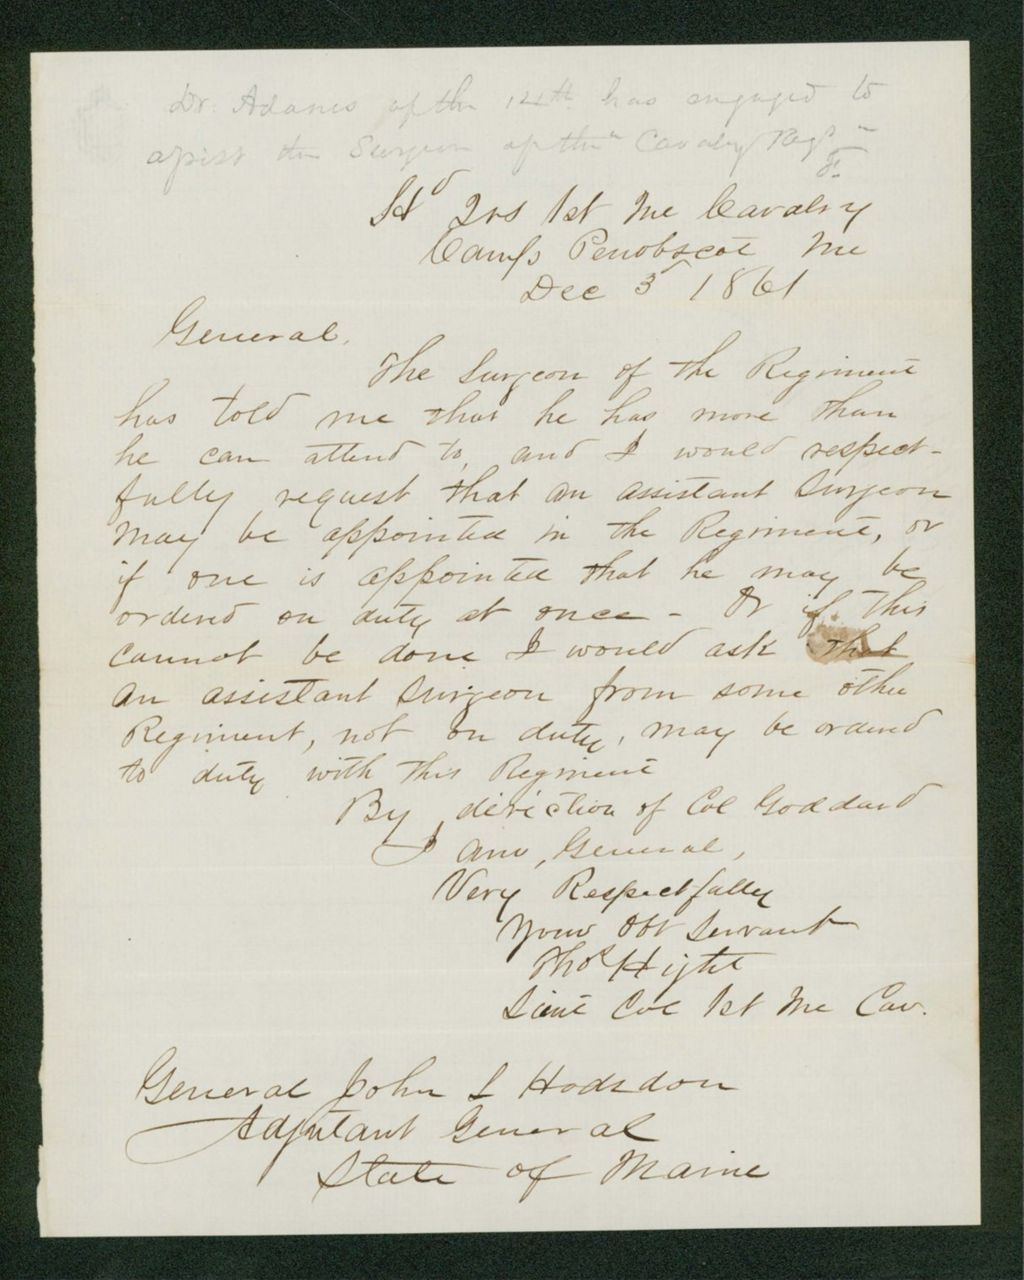 Dr. Adams of the 14th has engaged to
assist the Surgeon of the Cavalry Regt
Hd Qrs 1st Me Cavalry
Camp Penobscot Me
Dec 3d 1861
General,
The Surgeon of the Regiment
has told me that he has more than
he can attend to, and I would respect-
fully request that an assistant Surgeon
may be appointed in the Regiment, or
if one is appointed that he may be
ordered on duty at once - Or if this
cannot be done I would ask that
an assistant Surgeon from some other
Regiment, not on duty, may be ordered
to duty with this Regiment
By direction of Col Goddard
I am, General,
Very Respectfully
Your Obt Servant
Thos Hight
Lieut Col 1st Me Cav.
General John L Hodsdon
Adjutant General
State of Maine